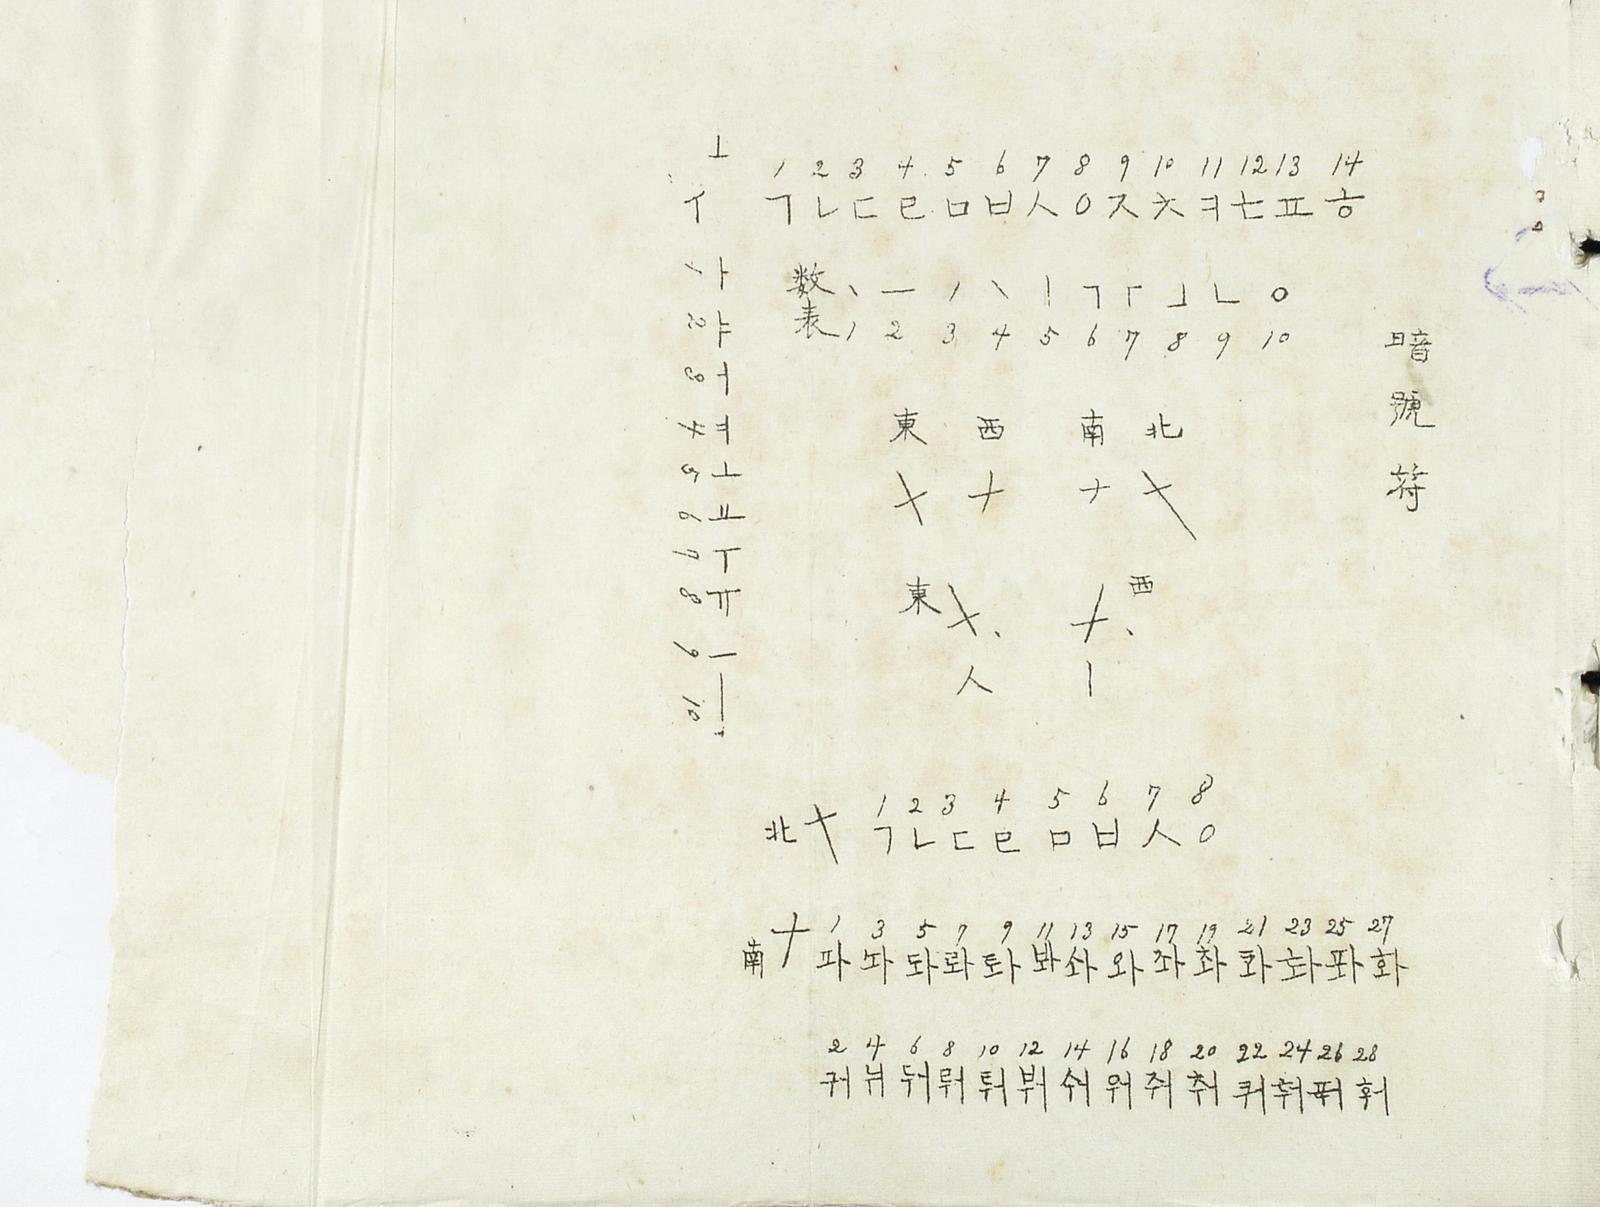 暗號符
1 2 3 4 5 6 7 8 9 10 11 12 13 14
ㄱ ㄴ ㄷ ㄹ ㅁ ㅂ ㅅ ㅇ ㅈ ㅊ ㅋ ㅌ ㅍ ㅎ
数表 丶 一 丿 ㇏ 丨 ㄱ ┌ ┘ ㄴ ㅇ
1 2 3 4 5 6 7 8 9 10
東 西 南 北
東 西
人 丨
ㅏ ㅑ ㅓ ㅕ ㅗ ㅛ ㅜ ㅠ ㅡ ㅣ
1 2 3 4 5 6 7 8 9 10
1 2 3 4 5 6 7 8
北 ㄱ ㄴ ㄷ ㄹ ㅁ ㅂ ㅅ ㅇ
1 3 5 7 9 11 13 15 17 19 21 23 25 27
南 과 놔 돠 롸 봐 솨 와 좌 촤 콰 퐈 화
2 4 6 8 10 12 14 16 18 20 22 24 26 28
궈 눠 둬 뤄 붜 숴 워 줘 춰 쿼 풔 훠